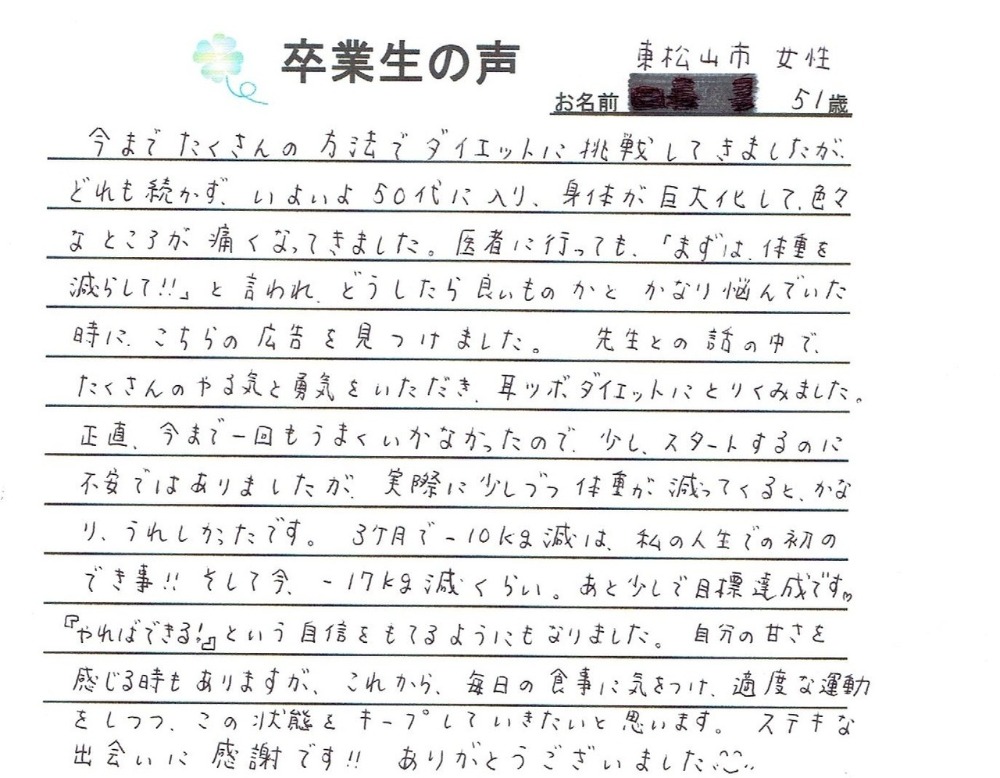 卒業生の声
東松山市 女性
お名前 51歳
今までたくさんの方法でダイエットに挑戦してきましたが、
どれも続かず、いよいよ50代に入り、身体が巨大化して、色々
なところが痛くなってきました。医者に行っても、「まずは、体重を
減らして!!」と言われ、どうしたら良いものかとかなり悩んでいた
時に、こちらの広告を見つけました。 先生との話の中で、
たくさんのやる気と勇気をいただき、耳ツボダイエットにとりくみました。
正直、今まで一回もうまくいかなかったので、少し、スタートするのに
不安ではありましたが、実際に少しづつ体重が減ってくると、かな
り、うれしかったです。 3ケ月で-10kg減は、私の人生での初の
でき事!! そして今、-17kg減くらい。あと少しで目標達成です。
『やればできる!』という自信をもてるようにもなりました。 自分の甘さを
感じる時もありますが、これから、毎日の食事に気をつけ、適度な運動
をしつつ、この状態をキープしていきたいと思います。 ステキな
出会いに感謝です!! ありがとうございました